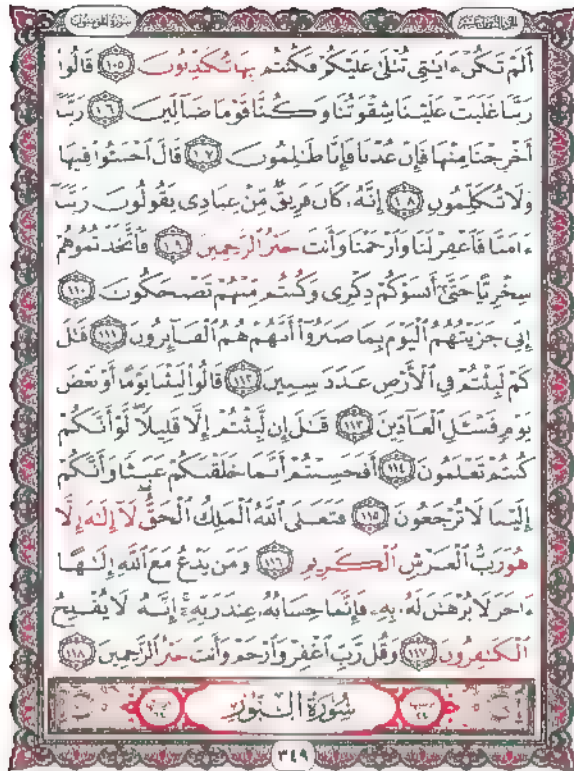 سورة المؤمنون
أَلَمْ تَكُنْ ءَايَٰتِى تُتْلَىٰ عَلَيْكُمْ فَكُنتُم بِهَا تُكَذِّبُونَ ١٠٥ قَالُوا۟
رَبَّنَا غَلَبَتْ عَلَيْنَا شِقْوَتُنَا وَكُنَّا قَوْمًا ضَآلِّينَ ١٠٦ رَبَّنَآ
أَخْرِجْنَا مِنْهَا فَإِنْ عُدْنَا فَإِنَّا ظَٰلِمُونَ ١٠٧ قَالَ ٱخْسَـُٔوا۟ فِيهَا
وَلَا تُكَلِّمُونِ ١٠٨ إِنَّهُۥ كَانَ فَرِيقٌ مِّنْ عِبَادِى يَقُولُونَ رَبَّنَآ
ءَامَنَّا فَٱغْفِرْ لَنَا وَٱرْحَمْنَا وَأَنتَ خَيْرُ ٱلرَّٰحِمِينَ ١٠٩ فَٱتَّخَذْتُمُوهُمْ
سِخْرِيًّا حَتَّىٰٓ أَنسَوْكُمْ ذِكْرِى وَكُنتُم مِّنْهُمْ تَضْحَكُونَ ١١٠
إِنِّى جَزَيْتُهُمُ ٱلْيَوْمَ بِمَا صَبَرُوٓا۟ أَنَّهُمْ هُمُ ٱلْفَآئِزُونَ ١١١ قَٰلَ
كَمْ لَبِثْتُمْ فِى ٱلْأَرْضِ عَدَدَ سِنِينَ ١١٢ قَالُوا۟ لَبِثْنَا يَوْمًا أَوْ بَعْضَ
يَوْمٍ فَسْـَٔلِ ٱلْعَآدِّينَ ١١٣ قَٰلَ إِن لَّبِثْتُمْ إِلَّا قَلِيلًا لَّوْ أَنَّكُمْ
كُنتُمْ تَعْلَمُونَ ١١٤ أَفَحَسِبْتُمْ أَنَّمَا خَلَقْنَٰكُمْ عَبَثًا وَأَنَّكُمْ
إِلَيْنَا لَا تُرْجَعُونَ ١١٥ فَتَعَٰلَى ٱللَّهُ ٱلْمَلِكُ ٱلْحَقُّ لَآ إِلَٰهَ إِلَّا
هُوَ رَبُّ ٱلْعَرْشِ ٱلْكَرِيمِ ١١٦ وَمَن يَدْعُ مَعَ ٱللَّهِ إِلَٰهًا
ءَاخَرَ لَا بُرْهَٰنَ لَهُۥ بِهِۦ فَإِنَّمَا حِسَابُهُۥ عِندَ رَبِّهِۦٓ إِنَّهُۥ لَا يُفْلِحُ
ٱلْكَٰفِرُونَ ١١٧ وَقُل رَّبِّ ٱغْفِرْ وَٱرْحَمْ وَأَنتَ خَيْرُ ٱلرَّٰحِمِينَ ١١٨
سُورَةُ النُّورِ
٣٤٩